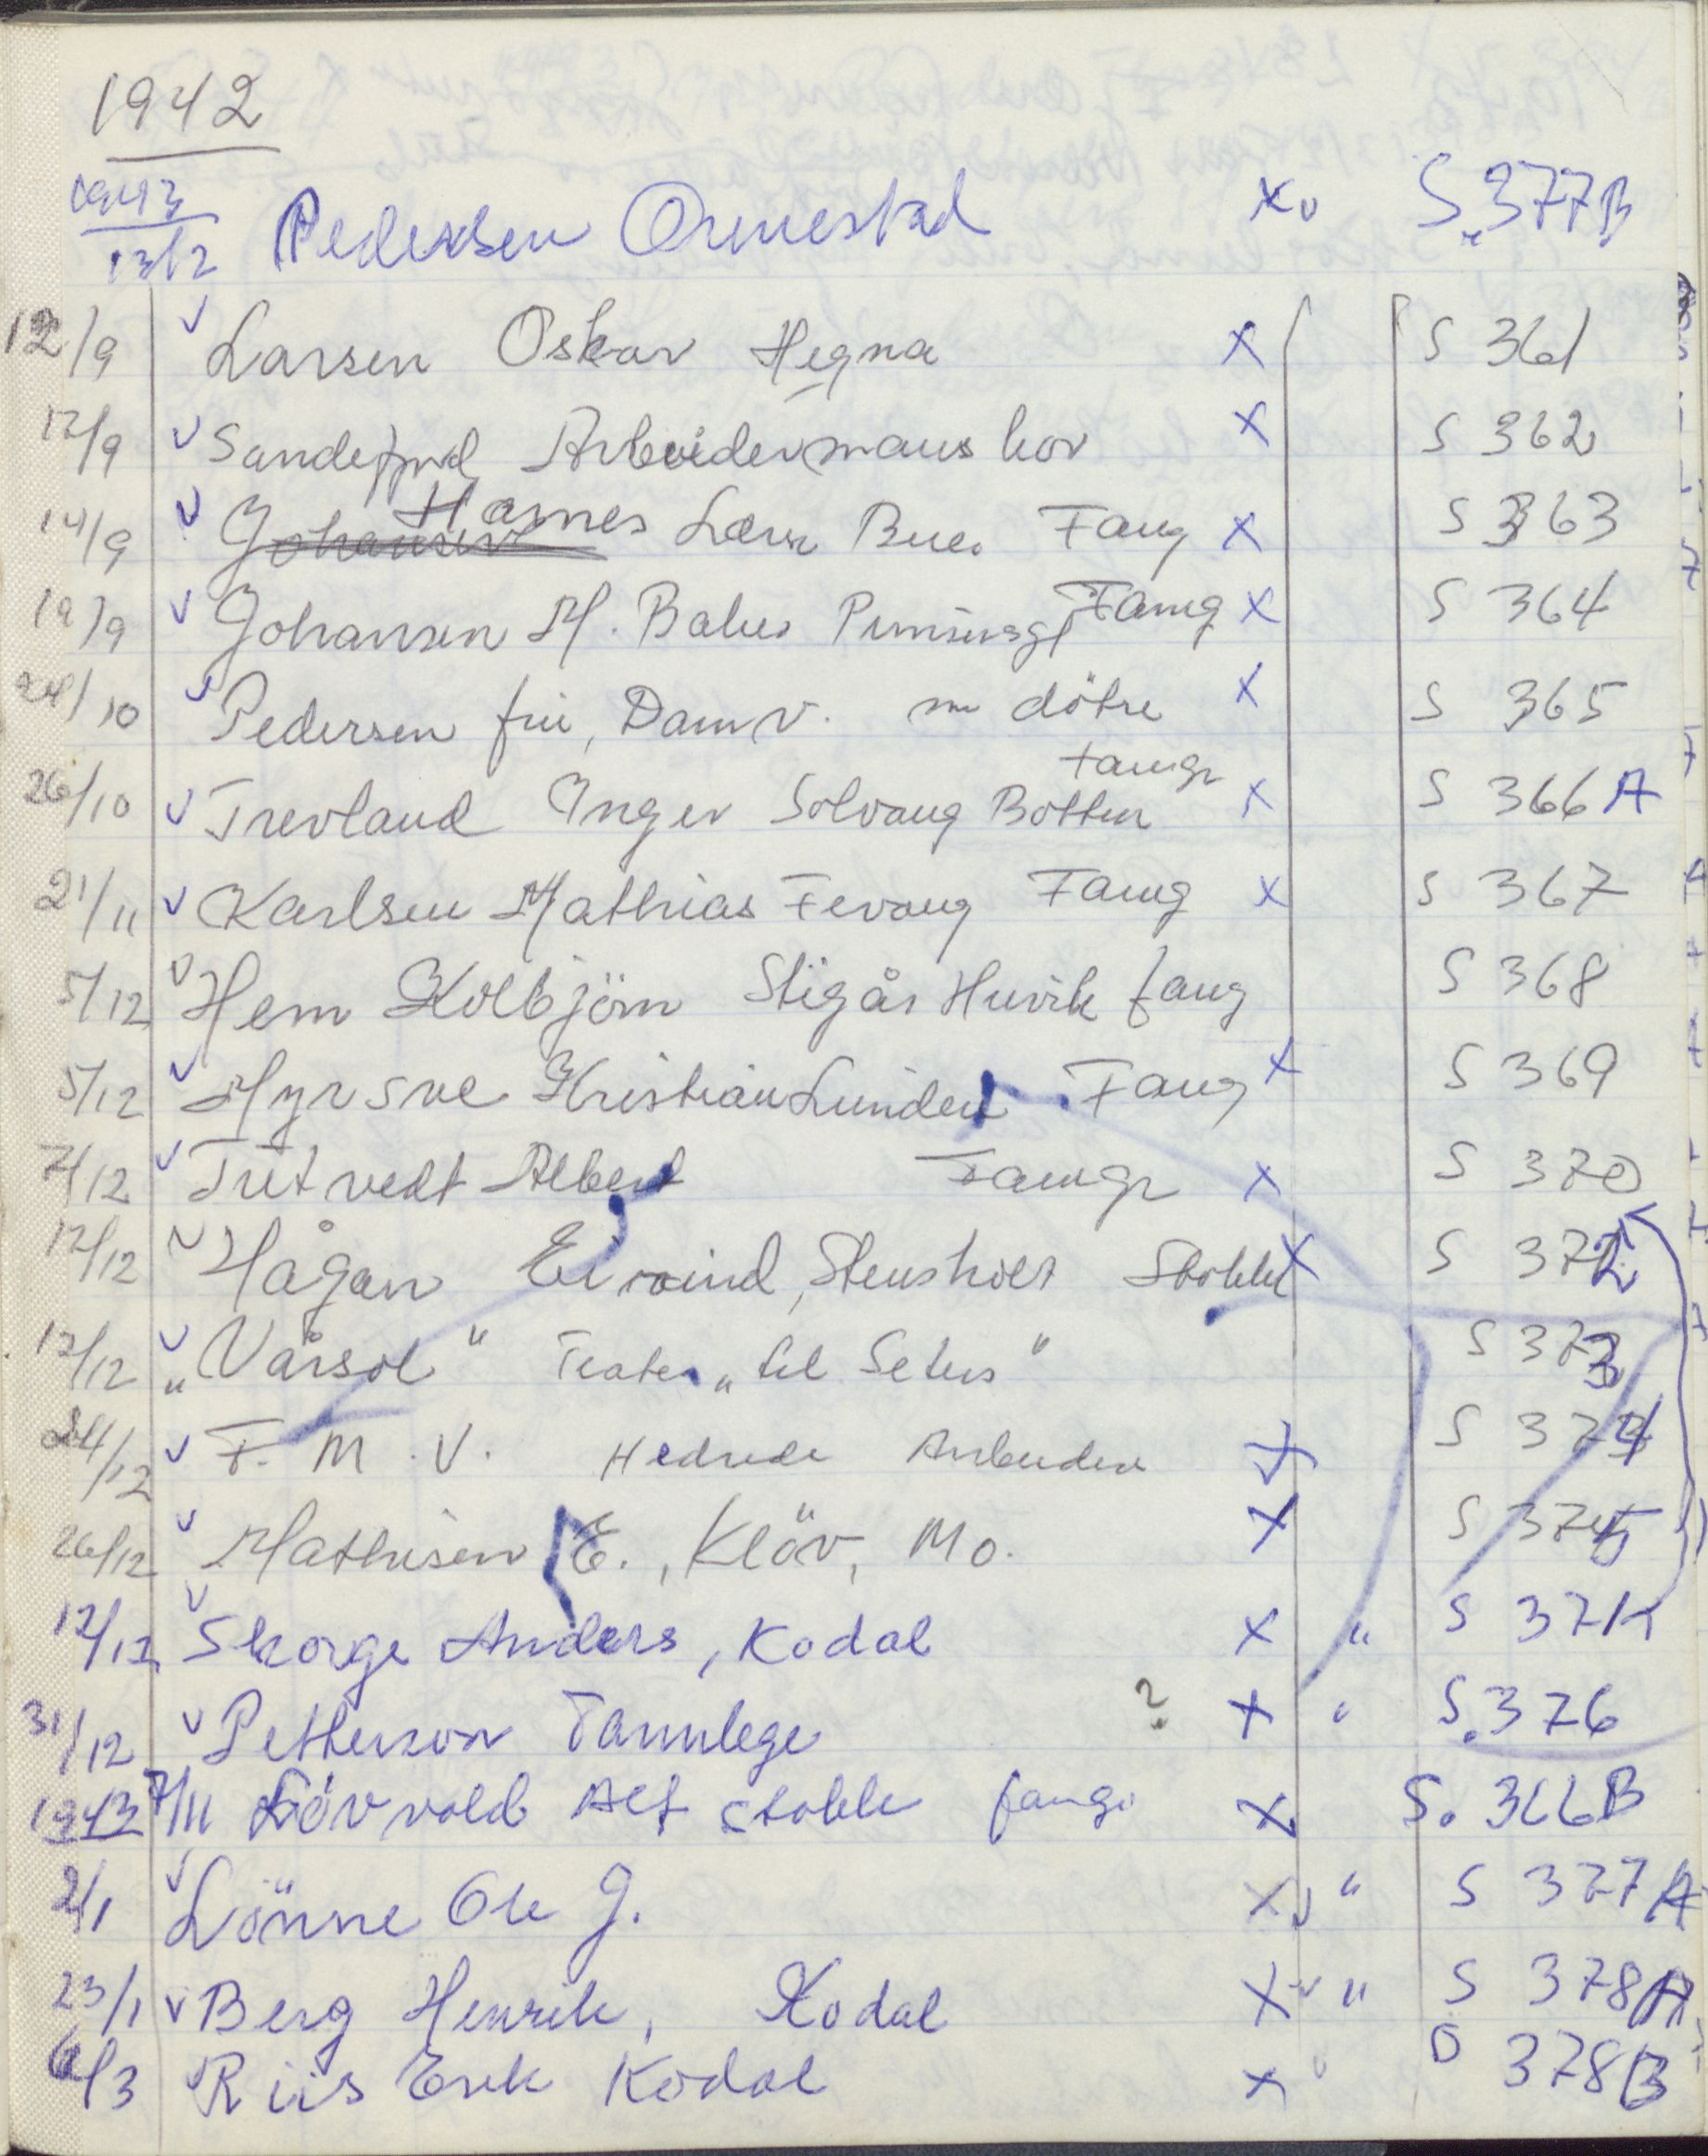 1942
1943
13/2 Pedersen Ormestad xv S. 377B
12/9 v Larsen Oskar Hegna x S 361
12/9 v Sandefjord Arbeidermanskor x S 362
14/9 v Johansen Hames Bue. Fang x S 363
19/9 v Johansen M. Famg x S 364
24/10 v Pedersen fru, Damv. m dötre x S 365
famgr
26/10 v Trevland Inger Solvang Botten x S 366 A
21/11 v Karlsen Mathias Fevang Famg x S 367
5/12 v Hem Kolbjörn Stigår Huvik fang S 368
5/12 v Myrsve Kristian Linden Fang x S 369
7/12 v Tutvedt Albert Famgr x S 370
12/12 v Hågan Eivind, Stensholt Stokke x S 372
12/12 v „Vårsol" Teater „ S 373
24/12 v F. M. V. Hedrede Arbeidere x S 374
26/12 v Mathisen E., Klöv, Mo. x S 375
12/12 v Skorge Anders, Kodal x " S 371
31/12 v Petterson Tannlege ? x " S. 376
1943 7/11 Lövvold Alf Stokke fang. x S. 366B
2/1 v Lönne Ole J. x v " S 377 A
23/1 v Berg Henrik, Kodal x v " S 378 A
6/3 v Riis Erik Kodal x " S 378 B